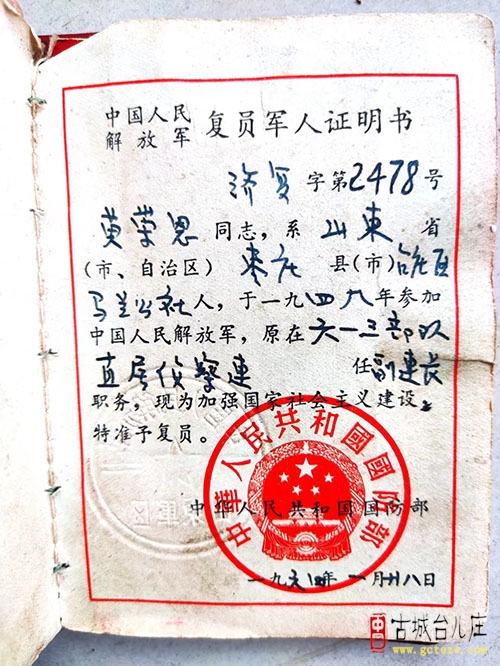 中国人民
解放军 复员军人证明书
济复 字第2478号
黄荣恩 同志，系 山東 省
(市、自治区) 枣庄 县(市) 台庄区
马兰公社 人，于一九四九年参加
中国人民解放军，原在 六一三部队
直属侦察连 任 副連长
职务，现为加强国家社会主义建设，
特准予复员。
中华人民共和国国防部
中華人民共和國國防部
一九六 年一月廿八日
古城台儿庄
www.gctezw.com